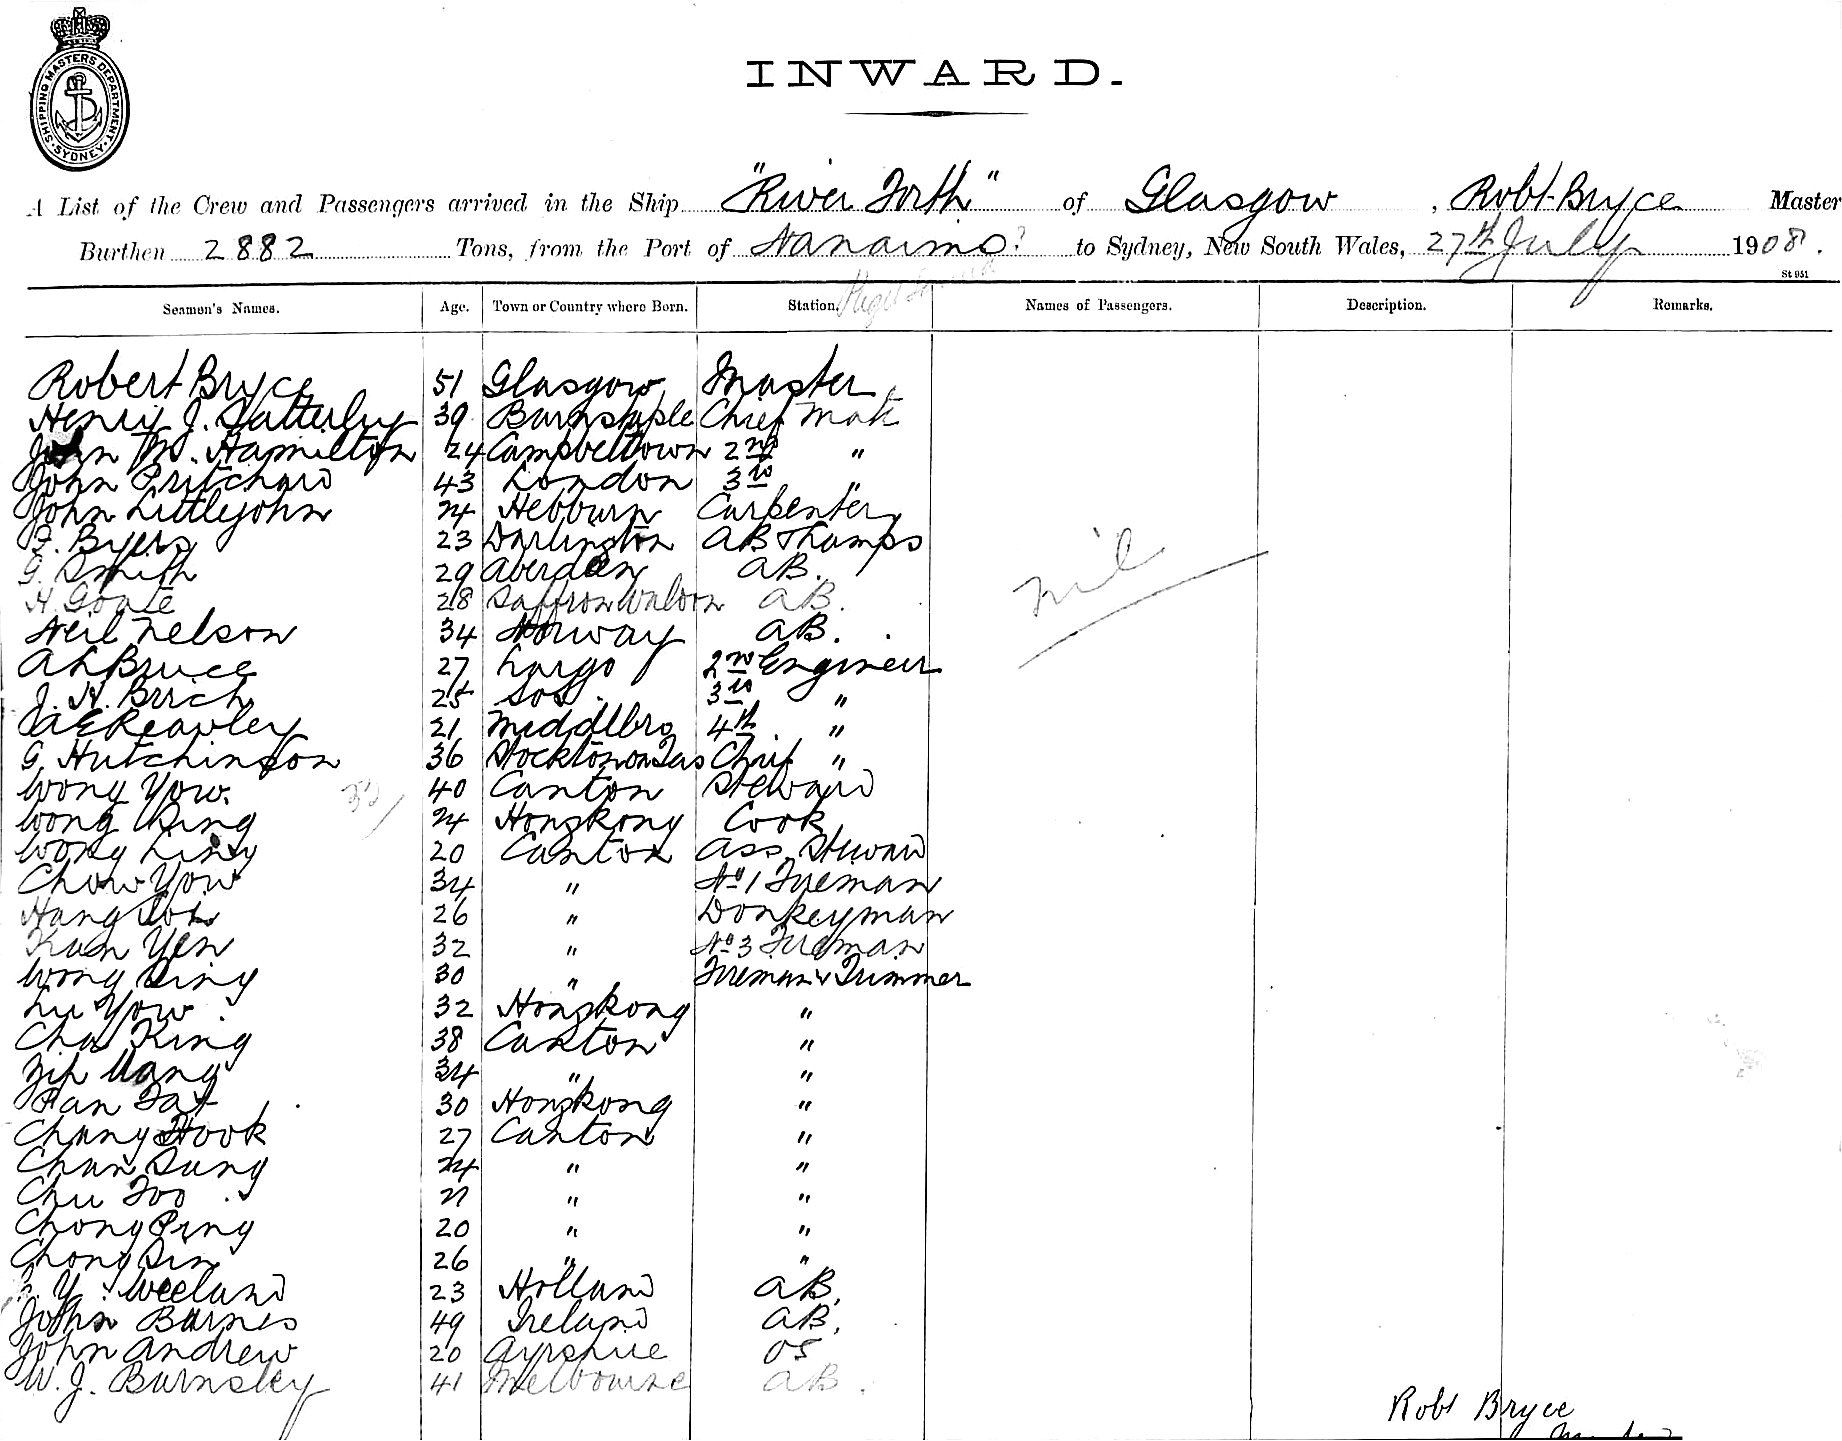 SHIPPING MASTERS DEPARTMENT. SYDNEY
INWARD.
A List of the Crew and Passengers arrived in the Ship "River Forth" of Glasgow, Robt. Bryce Master
Burthen 2882 Tons, from the Port of Nanaimo? to Sydney, New South Wales, 27th July 1908.
St 951
Seamen's Names. Age. Town or Country where Born. Station. Names of Passengers. Description. Remarks.
Robert Bryce 51 Glasgow Master
Henry J. Satterley 39 Barnstaple Chief Mate
John M. Hamilton 24 Campbeltown 2nd "
John Pritchard 43 London 3rd "
John Littlejohn 24 Hebburn Carpenter
Byers 23 Darlington AB & Lamps
G. Smith 29 Aberdeen AB.
H. 28 Saffron Waldon AB.
Neil Nelson 34 Norway AB.
A L Bruce 27 Largo 2nd Engineer
J. H. Birch 25 3rd "
21 Middlbro 4th "
G. Hutchinson 36 Stockton on Tees Chief "
Wong Yow. 40 Canton Steward
Wong King 24 Hongkong Cook
Wong Ling 20 Canton Ass. Steward
Chow Yow 34 " No 1 Fireman
Hang 26 " Donkeyman
Yen 32 " No 3 Fireman
Wong 30 " Fireman & Trimmer
Yow 32 Hongkong "
Cha King 38 Canton "
34 " "
30 Hongkong "
Chung Hook 27 Canton "
Chan Sung 24 " "
Chu Foo " "
Chong Ping 20 " "
Chong Sin 26 " "
Y. Weeland 23 Holland AB.
John Barnes 49 Ireland AB.
John Andrew 20 Ayrshire OS
W. J. Burnsley 41 Melbourne AB.
nil
32
Robt Bryce